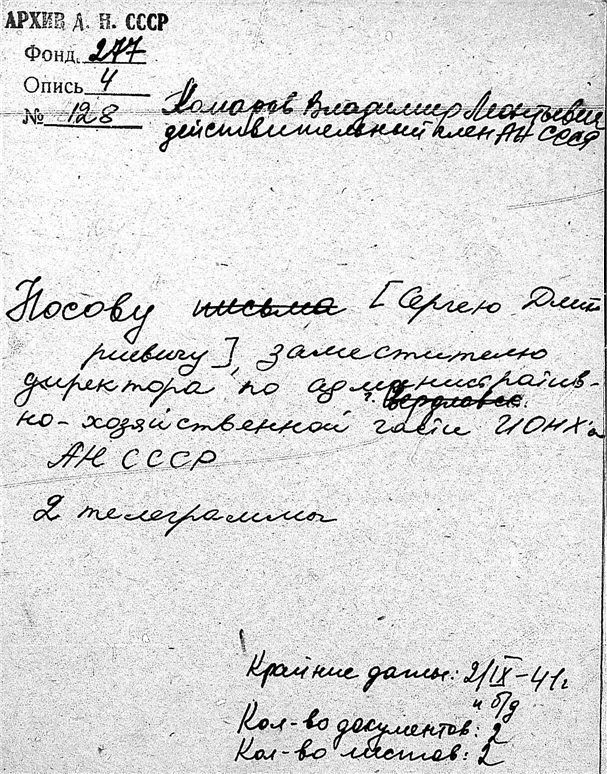 АРХИВ А. Н. СССР
Фонд. 277
Опись 4
№ 128
Комаров Владимир Леонтьевич
действительный член АН СССР
Носову письма [Сергею Дмит
риевичу], заместителю
директора по административ-
г. Свердловск.
но-хозяйственной части ИОНХ'а
АН СССР
2 телеграммы
Крайние даты: 2/IX-41г
и б/д
Кол-во документов: 2
Кол-во листов: 2